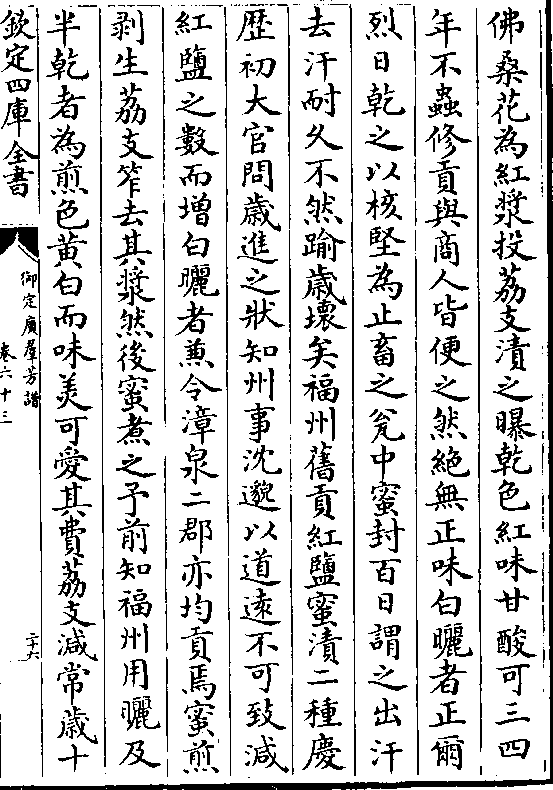 佛桑花為紅漿投荔支漬之曝乾色紅味甘酸可三四
年不蟲修貢與商人皆便之然絶無正味白曬者正爾
烈日乾之以核堅為止畜之瓮中蜜封百日謂之出汗
去汗耐久不然踰歲壞矣福州舊貢紅鹽蜜漬二種慶
歴初大官問歲進之狀知州事沈邈以道逺不可致減
紅鹽之數而增白曬者兼令漳泉二郡亦均貢焉蜜煎
剥生荔支笮去其漿然後蜜煮之予前知福州用曬及
半乾者為煎色黄白而味美可愛其費荔支減常歲十
欽定四庫全書
御定廣羣芳譜
卷六十三
二十六